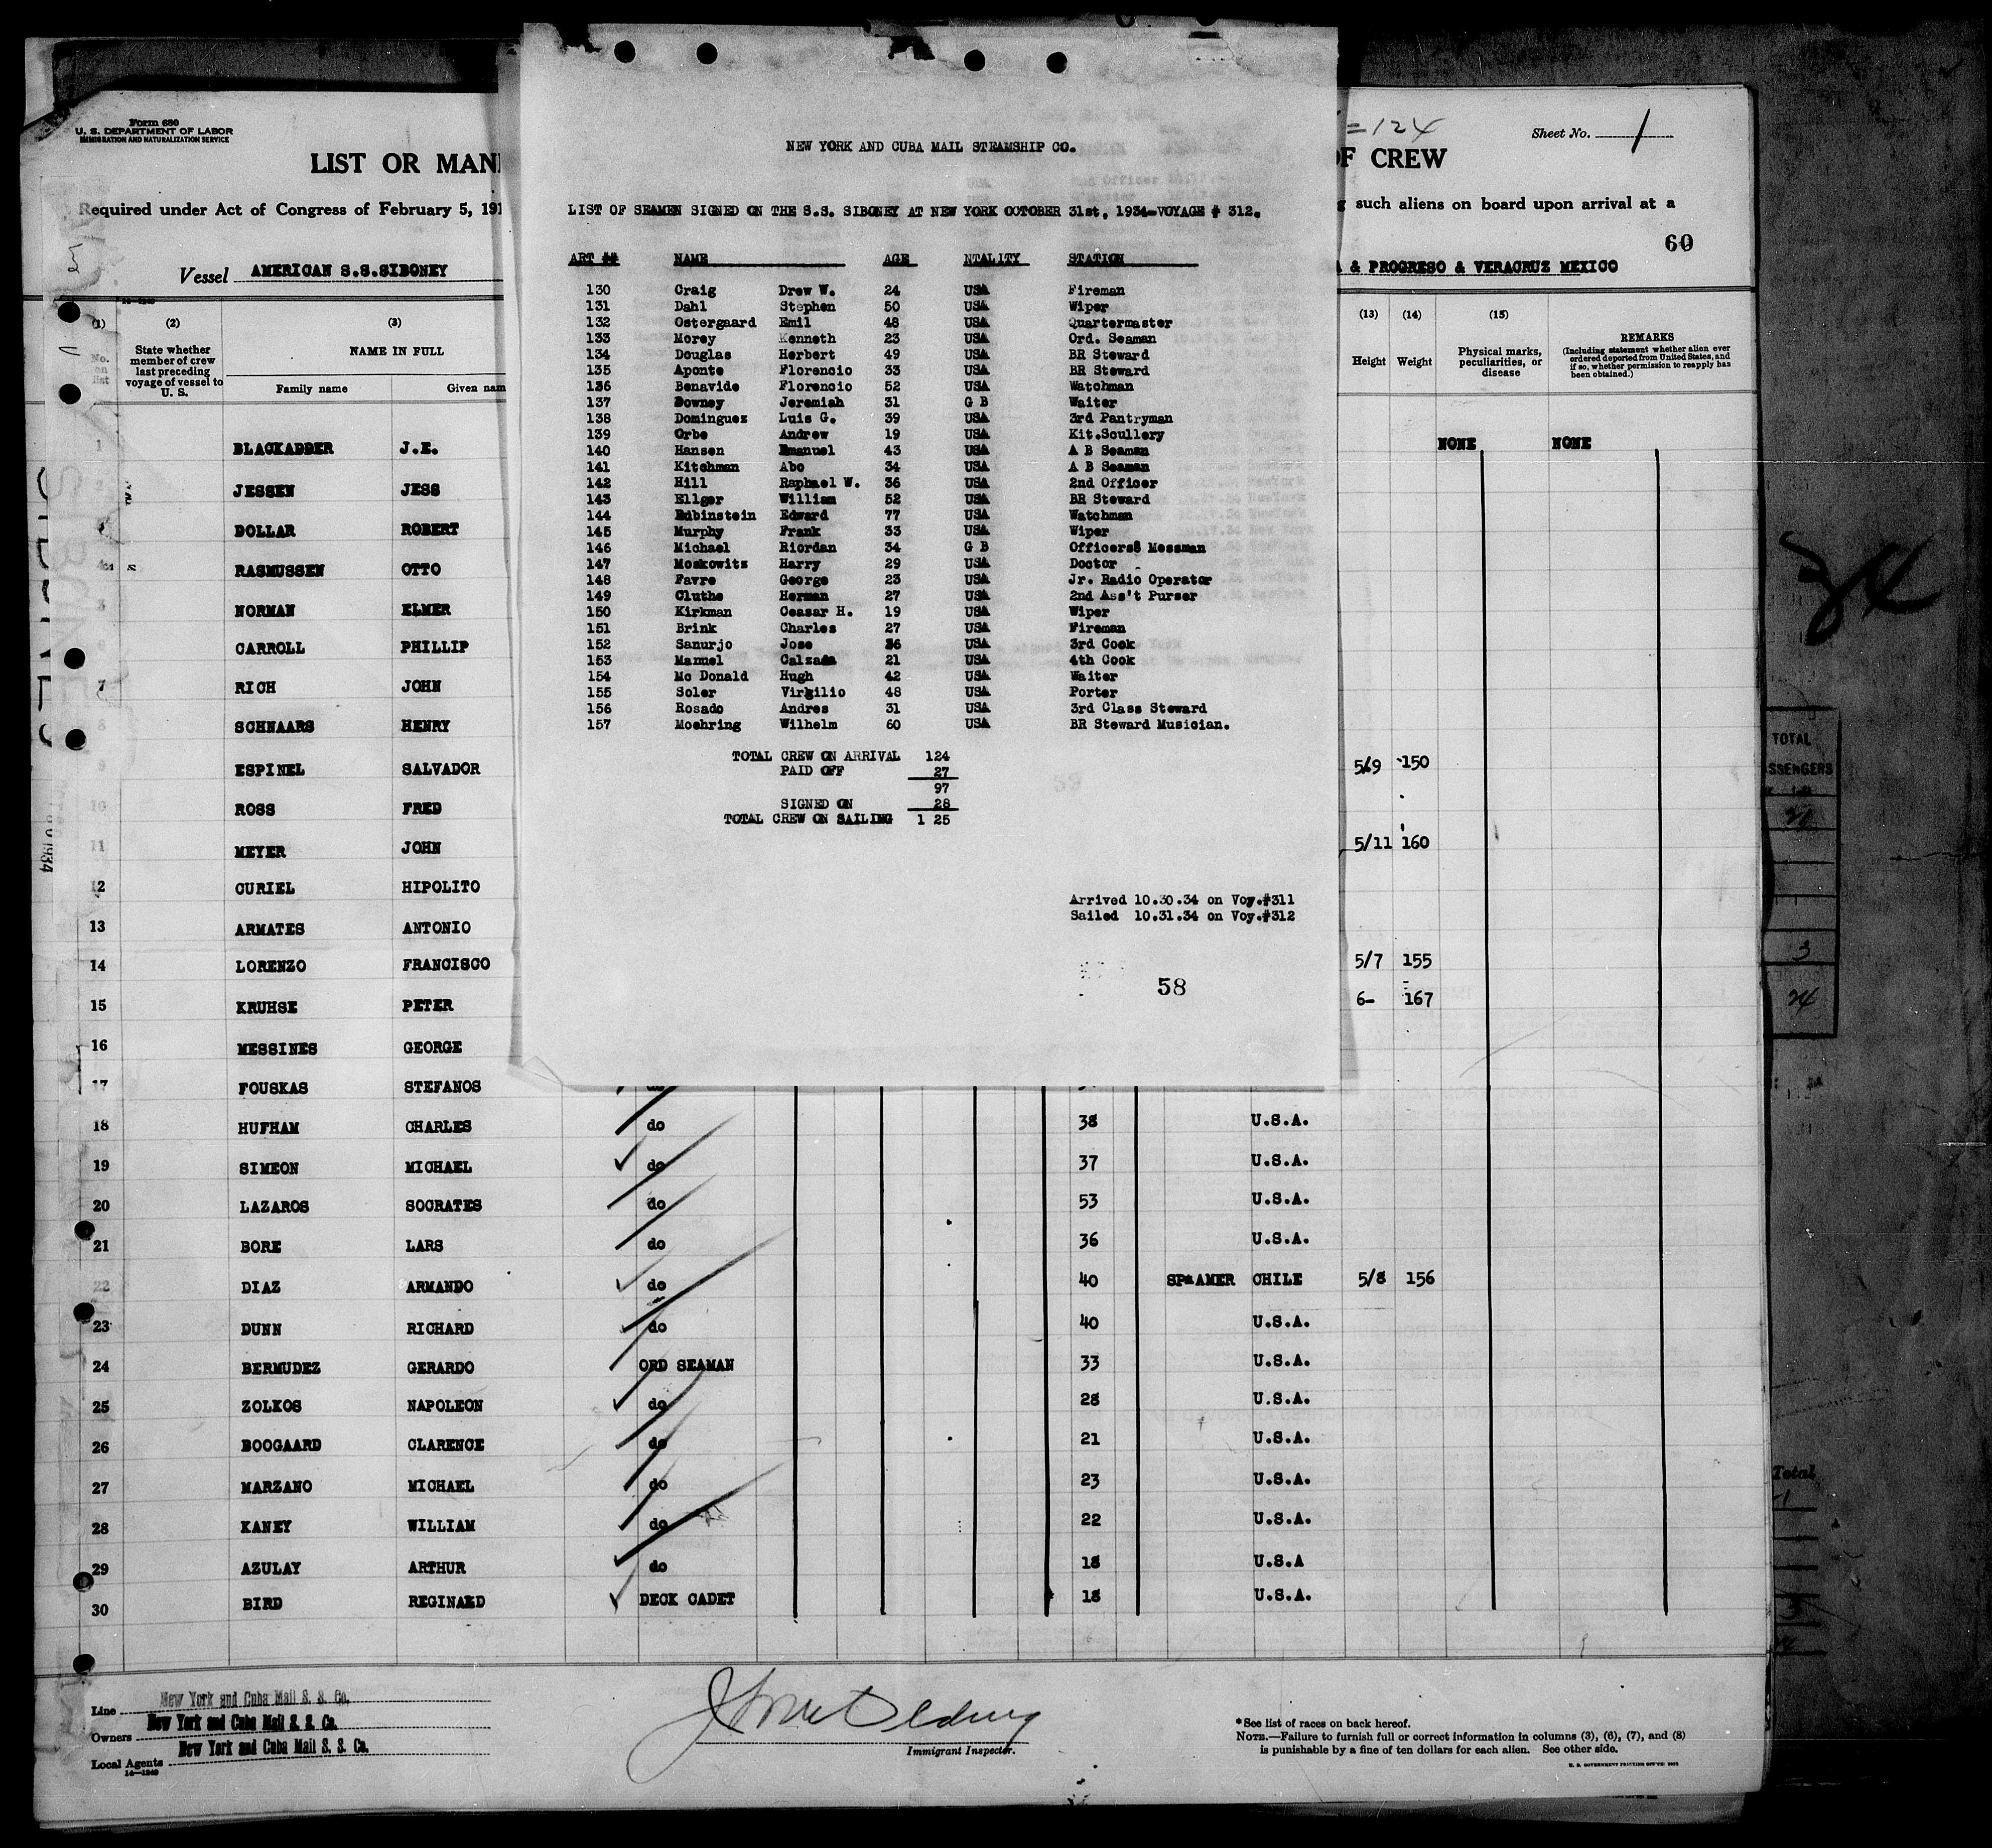 Form 680
U. S. DEPARTMENT OF LABOR
IMMIGRATION AND NATURALIZATION SERVICE
LIST OR MAN
Required under Act of Congress of February 5, 191
Vessel AMERICAN S.S.SIBONEY
14—1240
(1) (2) (3)
No. on list
State whether member of crew last preceding voyage of vessel to U. S.
NAME IN FULL
Family name Given nam
NEW YORK AND CUBA MAIL STEAMSHIP CO.
LIST OF SEAMEN SIGNED ON THE S.S. SIBONEY AT NEW YORK OCTOBER 31st, 1934-VOYAGE # 312.
ART ## NAME AGE NTALITY STATION
130 Craig Drew W. 24 USA Fireman
131 Dahl Stephen 50 USA Wiper
132 Ostergaard Emil 48 USA Quartermaster
133 Morey Kenneth 23 USA Ord. Seaman
134 Douglas Herbert 49 USA BR Steward
135 Aponte Florencio 33 USA BR Steward
136 Benavide Florencio 52 USA Watchman
137 Downey Jeremiah 31 G B Waiter
138 Dominguez Luis G. 39 USA 3rd Pantryman
139 Orbe Andrew 19 USA Kit.Scullery
140 Hansen Emanuel 43 USA A B Seaman
141 Kitchman Abo 34 USA A B Seaman
142 Hill Raphael W. 36 USA 2nd Officer
143 Ellger William 52 USA BR Steward
144 Rubinstein Edward 77 USA Watchman
145 Murphy Frank 33 USA Wiper
146 Michael Riordan 34 G B Officers Messman
147 Moskowitz Harry 29 USA Doctor
148 Favre George 23 USA Jr. Radio Operator
149 Cluthe Herman 27 USA 2nd Ass't Purser
150 Kirkman Ceasar H. 19 USA Wiper
151 Brink Charles 27 USA Fireman
152 Sanurjo Jose 36 USA 3rd Cook
153 Manuel Calzada 21 USA 4th Cook
154 Mc Donald Hugh 42 USA Waiter
155 Soler Virgilio 48 USA Porter
156 Rosado Andres 31 USA 3rd Class Steward
157 Moehring Wilhelm 60 USA BR Steward Musician.
TOTAL CREW ON ARRIVAL 124
PAID OFF 27
97
SIGNED ON 28
TOTAL CREW ON SAILING 1 25
Arrived 10.30.34 on Voy.#311
Sailed 10.31.34 on Voy.#312
58
=124
Sheet No. 1
OF CREW
such aliens on board upon arrival at a
60
A & PROGRESO & VERACRUZ MEXICO
(13) (14) (15)
Height Weight Physical marks, peculiarities, or disease
REMARKS
(Including statement whether alien ever ordered deported from United States, and if so, whether permission to reapply has been obtained.)
NONE NONE
1 BLACKADDER J.E.
JESSEN JESS
DOLLAR ROBERT
4 RASMUSSEN OTTO
5 NORMAN ELMER
6 CARROLL PHILLIP
7 RICH JOHN
8 SCHNAARS HENRY
9 ESPINEL SALVADOR 5/9 150
10 ROSS FRED
11 MEYER JOHN 5/11 160
12 CURIEL HIPOLITO
13 ARMATES ANTONIO
14 LORENZO FRANCISCO 5/7 155
15 KRUHSE PETER 6- 167
16 MESSINES GEORGE
17 FOUSKAS STEFANOS
18 HUFHAM CHARLES do 38 U.S.A.
19 SIMEON MICHAEL do 37 U.S.A.
20 LAZAROS SOCRATES do 53 U.S.A.
21 BORE LARS do 36 U.S.A.
22 DIAZ ARMANDO do 40 SP.AMER CHILE 5/8 156
23 DUNN RICHARD do 40 U.S.A.
24 BERMUDEZ GERARDO ORD SEAMAN 33 U.S.A.
25 ZOLKOS NAPOLEON do 28 U.S.A.
26 BOOGAARD CLARENCE do 21 U.S.A.
27 MARZANO MICHAEL do 23 U.S.A.
28 KANEY WILLIAM do 22 U.S.A.
29 AZULAY ARTHUR do 18 U.S.A
30 BIRD REGINALD DECK CADET 18 U.S.A.
Line New York and Cuba Mail S. S. Co.
Owners New York and Cuba Mail S. S. Co.
Local Agents New York and Cuba Mail S. S. Co.
14—1240
Immigrant Inspector.
* See list of races on back hereof.
NOTE.—Failure to furnish full or correct information in columns (3), (6), (7), and (8)
is punishable by a fine of ten dollars for each alien. See other side.
U. S. GOVERNMENT PRINTING OFFICE
34
TOTAL
SSENGERS
21
3
24
Total